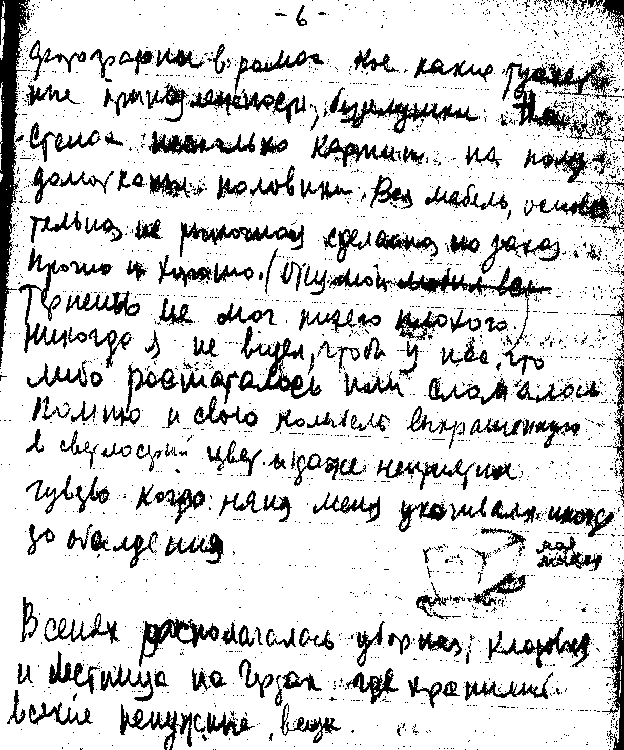 - 6 -
фотографии в рамке кое какие туалет
ные принадлежности, безделушки. На
стенах несколько картин на полу
домотканы половики. Вся мебель, основа
тельная не рыночная сделана на заказ.
Прочно и хорошо. (Отц мой
Терпеть не мог ничего плохого)
Никогда я не видел, чтобы у нас, что
либо расшаталось или сломалось
Помню и свою колыбель выкрашенную
в светлосерый цвет и даже неприятни
чувдво когда няня меня укачивала иногда
до обалдения.
моя
люлька
В сенях располагалась уборная, кладовая
и лестница на чердак где хранили
всякие ненужные вещи.